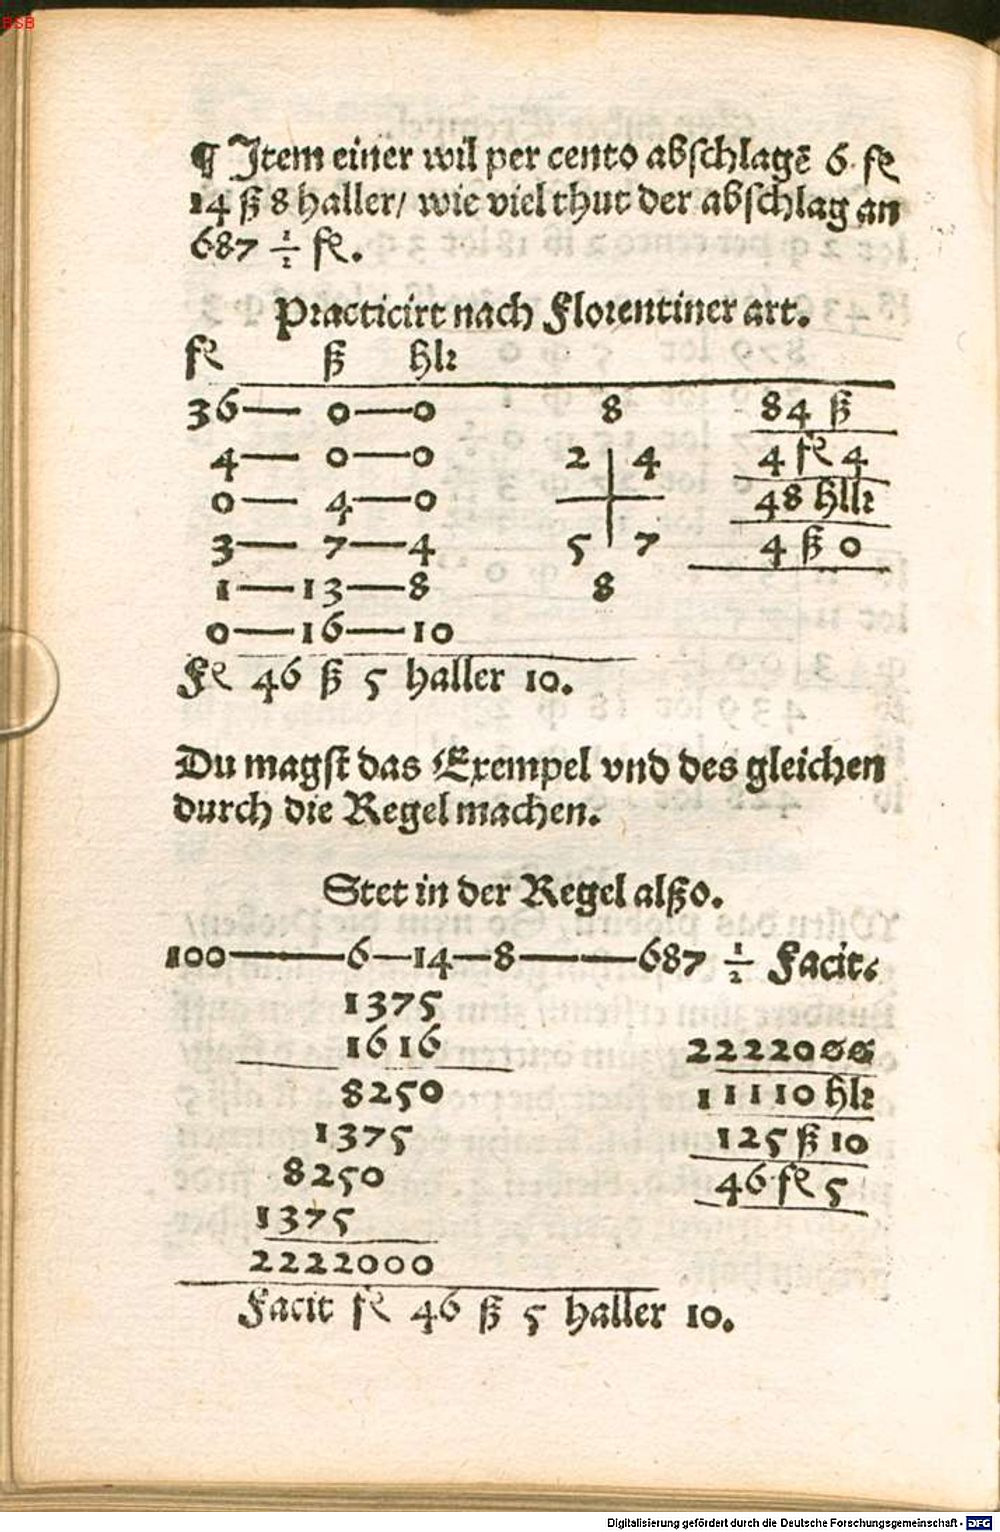 BSB
¶ Item einer wil per cento abſchlagẽ 6 fl
14 ß 8 haller/ wie viel thut der abſchlag an
687 1/2 fl.
Practicirt nach Florentiner art.
fl ß hlr
36— 0—0 8 84 ß
4— 0—0 2 | 4 4 fl 4
0— 4—0 48 hllr
3— 7—4 5 | 7 4 ß 0
1—13—8 8
0—16—10
Fl 46 ß 5 haller 10.
Du magſt das Exempel vnd des gleichen
durch die Regel machen.
Stet in der Regel alßo.
100——6—14—8——687 1/2 Facit.
1375
1616 2222000
8250 11110 hlr
1375 125 ß 10
8250 46 fl 5
1375
2222000
Facit fl 46 ß 5 haller 10.
Digitalisierung gefördert durch die Deutsche Forschungsgemeinschaft - DFG